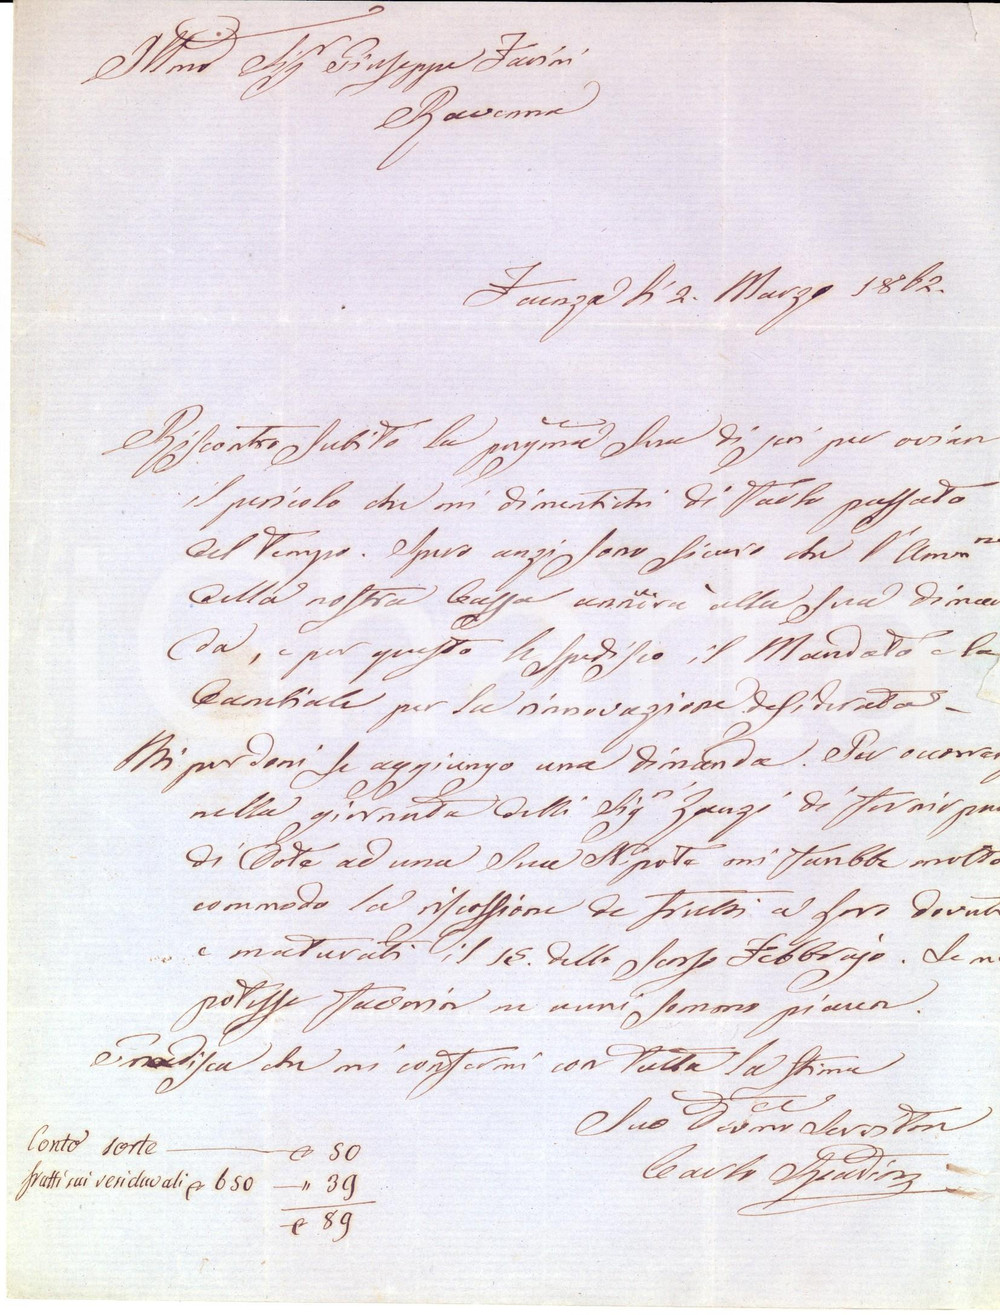 Illmo Sigr Giuseppe Favini
Ravenna
Faenza li 2. Marzo 1862.
Riscontro subito la pregma Sua di jeri per oviare
il pericolo che mi dimentichi di farlo passato
del tempo. Spero anzi sono sicuro che l'Ammne
della nostra Cassa annuirà alla sua diman
da, e per questo le spedisco il Mandato e la
Cambiale per la rinnovazione desiderata –
Mi perdoni se aggiungo una dimanda. Per
nella giornata delli Sigri Zauzi di fornir
di Dote ad una Sua Nipote mi farebbe molto
commodo la riscossione de frutti a loro dovuti
e maturati il 15. dello scorso Febbrajo. Se
potesse favorir ne avrei sommo piacer.
Gradisca che mi confermi con tutta la stima
Suo Devmo Servitore
Carlo
Conto sorte — 50
frutti sui residuali 650 — " 39
89